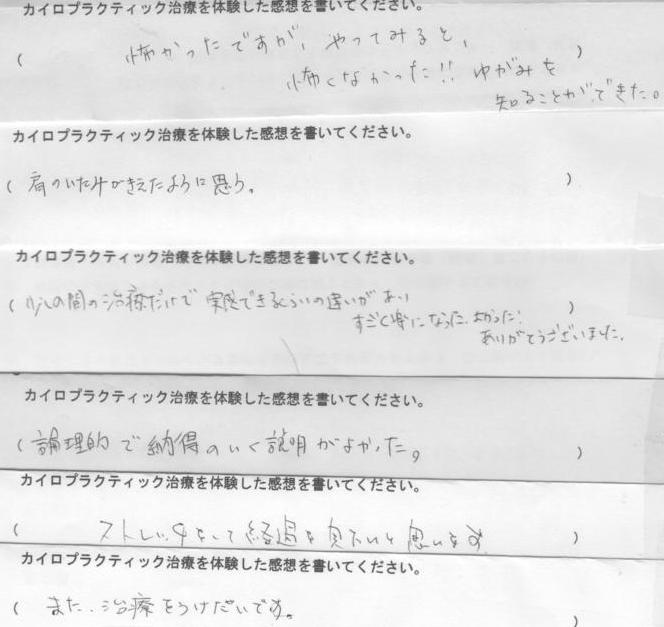 カイロプラクティック治療を体験した感想を書いてください。
( 怖かったですが、やってみると、 )
怖くなかった!! ゆがみを
知ることができた。
カイロプラクティック治療を体験した感想を書いてください。
( 肩のいたみがきえたように思う。 )
カイロプラクティック治療を体験した感想を書いてください。
( 少しの間の治療だけで 実感できるくらいの違いがあり )
すごく楽になった。よかった!
ありがとうございました。
カイロプラクティック治療を体験した感想を書いてください。
( 論理的で納得のいく説明がよかった。 )
カイロプラクティック治療を体験した感想を書いてください。
( ストレッチをして経過を見たいと思います )
カイロプラクティック治療を体験した感想を書いてください。
( また、治療をうけたいです。 )